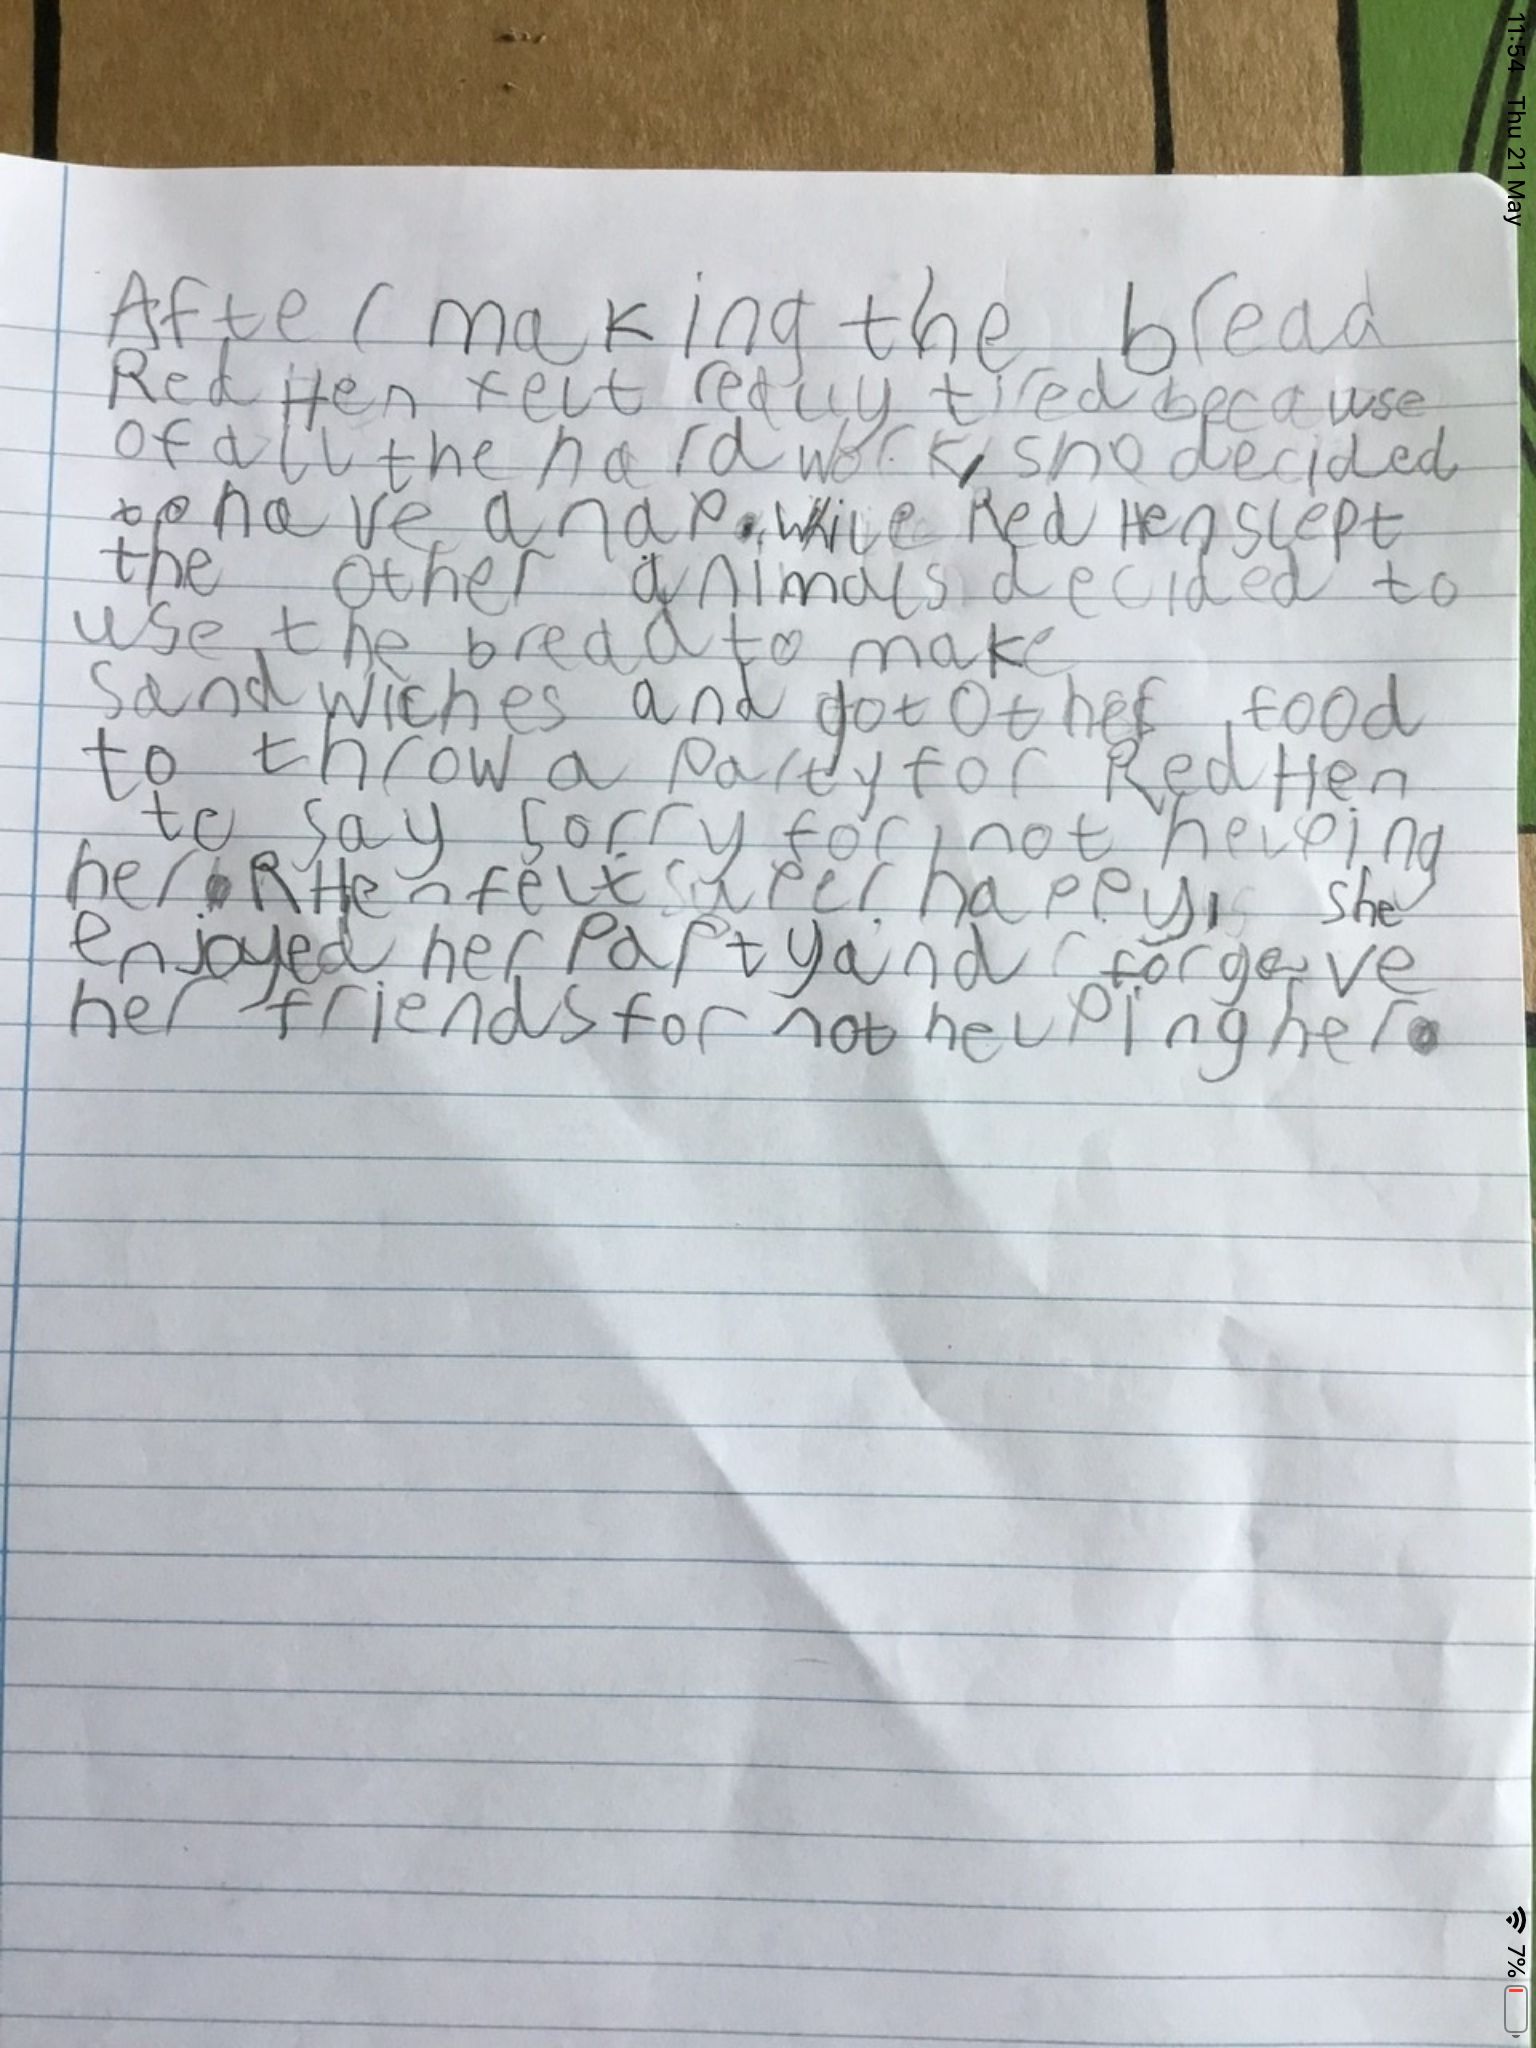 After making the bread
Red Hen felt really tired because
of all the hard work, she decided
to have a nap. While Red Hen slept
the other animals decided to
use the bread to make
Sandwiches and got other food
to throw a Party for Red Hen
to say sorry for not helping
her. R Hen felt super happy, she
enjoyed her Party and forgave
her friends for not helping her.
11:54 Thu 21 May
7%